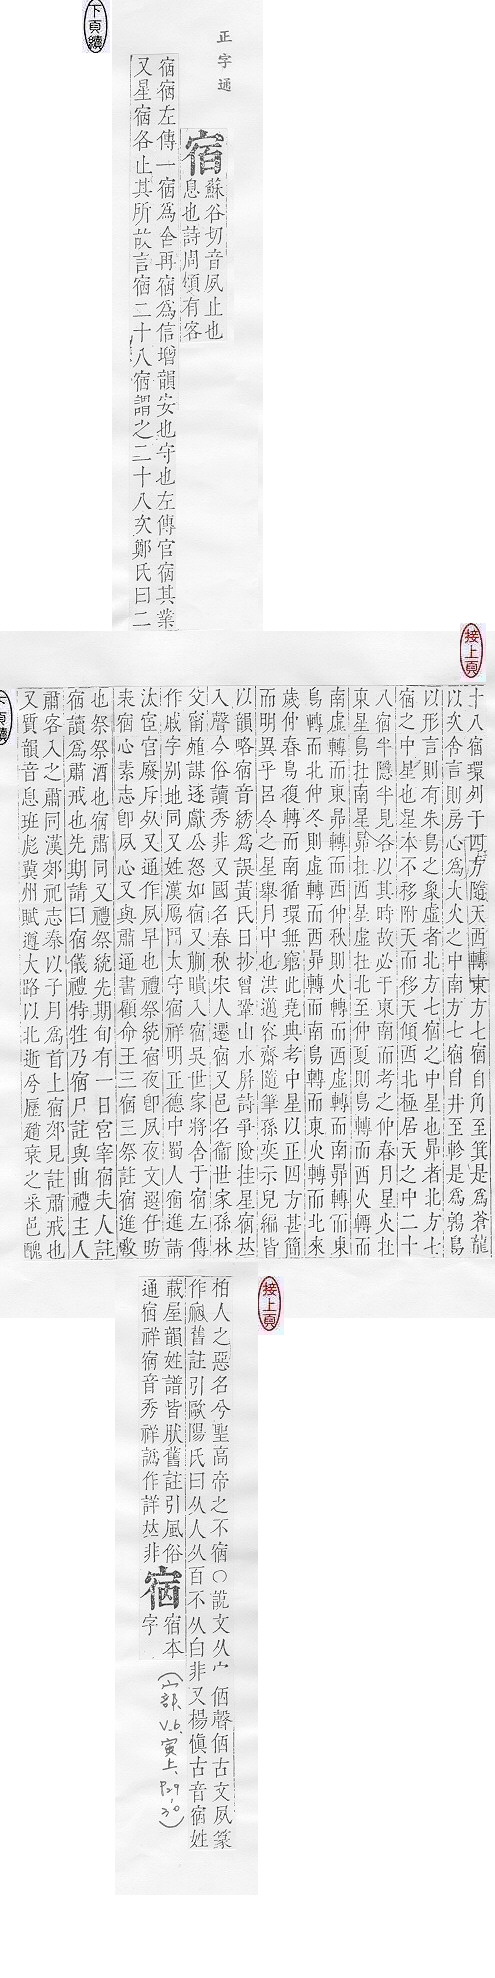 下頁續
正字通
宿
蘇谷切音夙止也
息也詩周頌有客
宿宿左傳一宿為舍再宿為信增韻安也守也左傳官宿其業
又星宿各止其所故言宿二十八宿謂之二十八次鄭氏曰二
接上頁
十八宿環列于四方隨天西轉東方七宿自角至箕是為蒼龍
以次舍言則房心為大火之中南方七宿自井至軫是為鶉鳥
以形言則有朱鳥之象虛者北方七宿之中星也昴者北方七
宿之中星也星本不移附天而移天傾西北極居天之中二十
八宿半隱半見各以其時故必于東南而考之仲春月星火在
東星鳥在南星昴在西星虛在北至仲夏則鳥轉而西火轉而
南虛轉而東昴轉而西仲秋則火轉而西虛轉而南昴轉而東
鳥轉而北仲冬則虛轉而西昴轉而南鳥轉而東火轉而北來
歲仲春鳥復轉而南循環無窮此堯典考中星以正四方甚簡
而明異乎呂令之星舉月中也洪邁容齋隨筆孫奕示兒編皆
以韻略宿音綉為誤黃氏日抄曾鞏山水屏詩爭險挂星宿𠀤
入聲今俗讀秀非又國名春秋宋人遷宿又邑名衞世家孫林
父甯殖謀逐獻公怒如宿又蒯聵入宿吳世家將舍于宿左傳
作戚字別地同又姓漢鴈門太守宿祥明正德中蜀人宿進諫
汰宦官廢斥又通作夙早也禮祭統宿夜卽夙夜文選任昉
表宿心素志卽夙心又與肅通書顧命王三宿三祭註宿進敬
也祭祭酒也宿肅同又禮祭統先期旬有一日宮宰宿夫人註
宿讀為肅戒也先期請曰宿儀禮特牲乃宿尸註與曲禮主人
肅客入之肅同漢郊祀志泰以子月為首上宿郊見註肅戒也
又質韻音息班彪冀州賦遵大路以北逝兮歷趙衰之采邑醜
下頁續
接上頁
柏人之惡名兮聖高帝之不宿○說文从宀㑉聲㑉古文夙篆
作舊註引歐陽氏曰从人从百不从白非又楊慎古音宿姓
蕺屋韻姓譜皆肰舊註引風俗
通宿祥宿音秀祥譌作詳𠀤非
㝛
宿本
字
(宀部, V.6, 寅上, P.29-30)